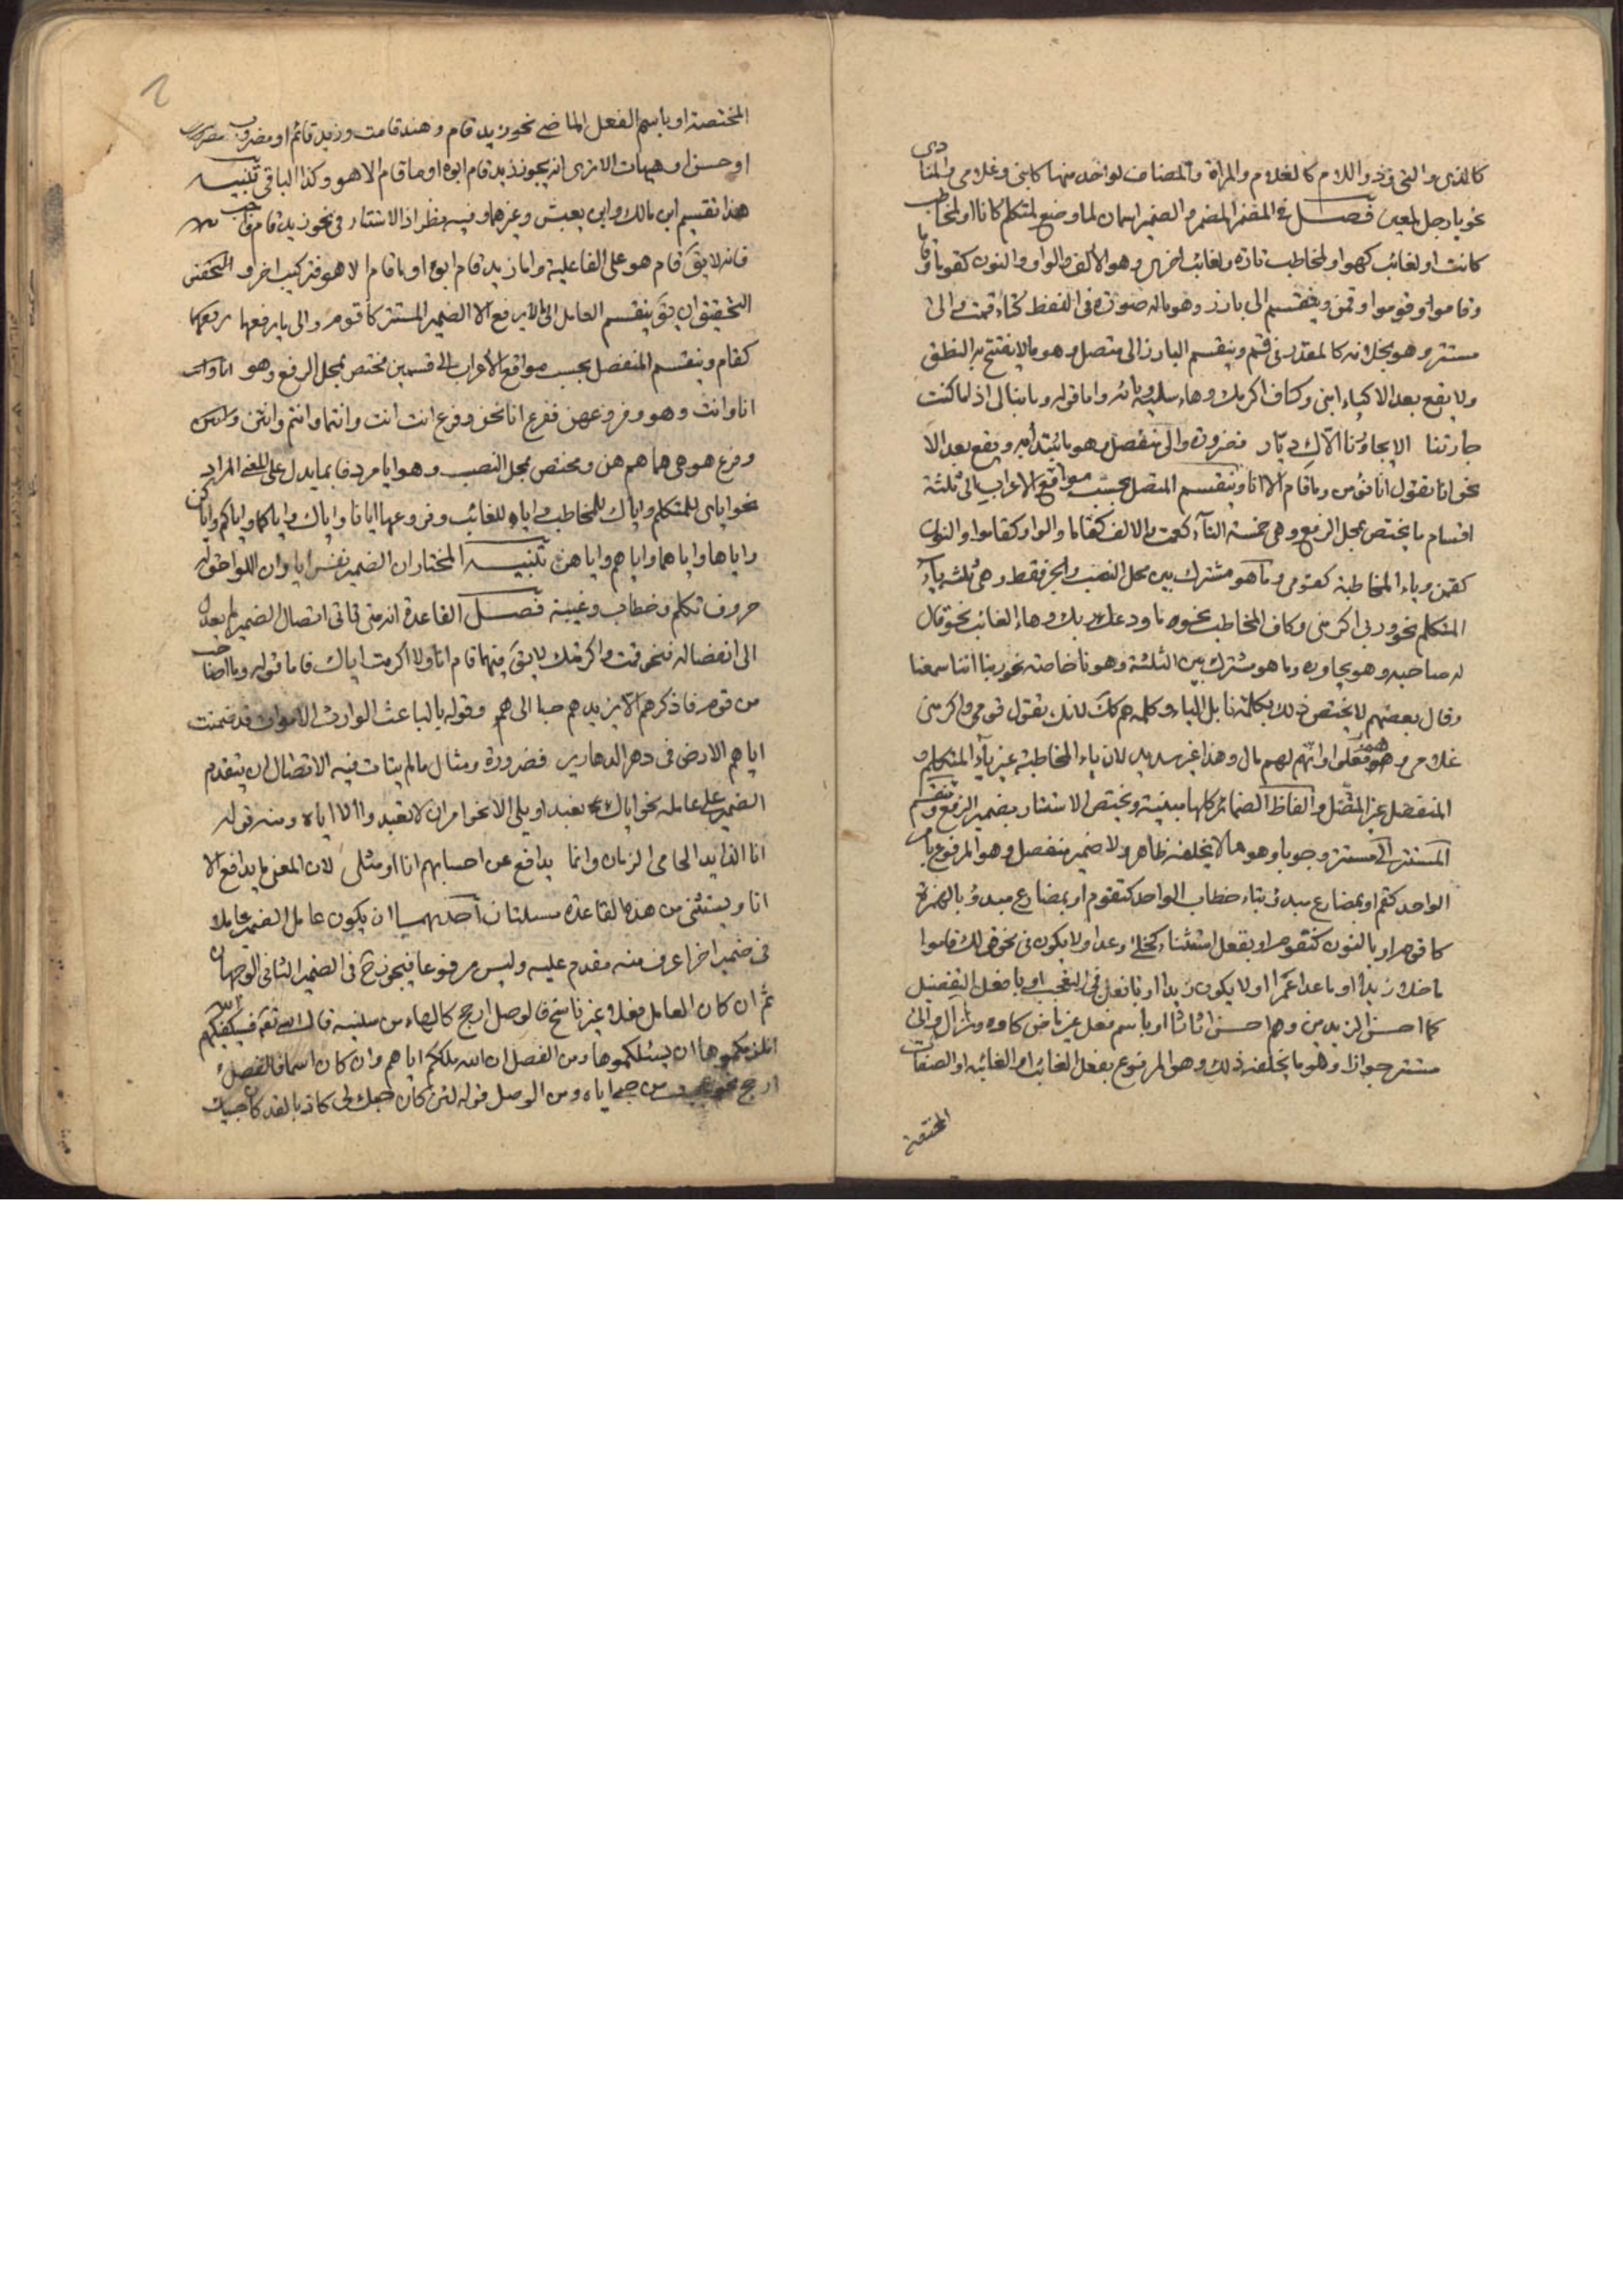 كالذى والتى وذو اللام كالغلام والمراة والمضاف لواحد منها كابنى وغلامى والمنادى
نحو يا رجل لمعين فصل فى المضمر المضمر والضمير اسمان لما وضع لمتكلم كانا او لمخاطب
كانت او لغائب كهو او لمخاطب تارة ولغائب اخرى وهو الالف والواو والنون كقوما وقاما
وقاموا وقوموا وقمن وينقسم الى بارز وهو ماله صورة فى اللفظ كتاء قمت والى
مستتر وهو بخلافه كالمقدر فى قم وينقسم البارز الى متصل وهو ما لا يفتتح به النطق
ولا يقع بعد الا كياء ابنى وكاف اكرمك وهاء سلنيه وتائه واما قوله وما نبالى اذا ما كنت
جارتنا الا يجاورنا الاك ديار فضرورة والى منفصل وهو ما يبتدأ به ويقع بعد الا
نحو انا تقول انا مؤمن وما قام الا انا وينقسم المتصل بحسب مواقع الاعراب الى ثلثة
اقسام ما يختص بمحل الرفع وهى خمسة التاء كقمت والالف كقاما والواو كقاموا والنون
كقمن وياء المخاطبة كقومى وما هو مشترك بين محل النصب والجر فقط وهى ثلثة ياء
المتكلم نحو ربى اكرمنى وكاف المخاطب نحو ما ودعك ربك وهاء الغائب نحو قال
له صاحبه وهو يحاوره وما هو مشترك بين الثلثة وهو نا خاصة نحو ربنا اننا سمعنا
وقال بعضهم لا يختص ذلك بكلمة نا بل الياء وكلمة هم كك لانك تقول قومى واكرمنى
غلامى وهم فعلوا وانهم لهم مال وهذا غير سديد لان ياء المخاطبة غير ياء المتكلم و
المنفصل غير المتصل والفاظ الضمائر كلها مبنية ويختص الاستتار بضمير الرفع وينقسم
المستتر الى مستتر وجوبا وهو ما لا يخلفه ظاهر ولا ضمير منفصل وهو المرفوع بامر
الواحد كقم او بمضارع مبدؤ بتاء خطاب الواحد كتقوم او بمضارع مبدؤ بالهمزة
كاقوم او بالنون كنقوم او بفعل استثناء كخلا وعدا ولا يكون فى نحو قولك قاموا
ما خلا زيدا او ما عدا عمرا او لا يكون زيدا او بافعل فى التعجب او بافعل التفضيل
كما احسن الزيدين وهم احسن اثاثا او باسم فعل غير ماض كاوه ونزال والى
مستتر جوازا وهو ما يخلفه ذلك وهو المرفوع بفعل الغائب او الغائبة او الصفات
المختصة
المختصة او باسم الفعل الماضى نحو زيد قام وهند قامت وزيد قائم او مضروب
او حسن او هيهات الا ترى انه يجوز زيد قام ابوه او ما قام الا هو وكذا الباقى تنبيه
هذا تقسيم ابن مالك وابن يعيش وغيرهما وفيه نظر اذ الاستتار فى نحو زيد قام واجب
فانه لا يق قام هو على الفاعلية واما زيد قام ابوه او ما قام الا هو فتركيب اخر و
التحقيق ان يق ينقسم العامل الى ما لا يرفع الا الضمير المستتر كاقوم والى ما يرفعهما
كقام وينقسم المنفصل بحسب مواقع الاعراب الى قسمين مختص بمحل الرفع وهو
انا وانت وهو وفروعهن ففرع انا نحن وفرع انت انت وانتما وانتم وانتن
وفرع هو هى هما هم هن ومختص بمحل النصب وهو ايا مردفا بما يدل على المعنى المراد
نحو اياى للمتكلم واياك للمخاطب واياه للغائب وفروعها ايانا واياك واياكما واياكم واياكن
واياها واياهما واياهم واياهن تنبيه المختار ان الضمير نفس ايا وان اللواحق له
حروف تكلم وخطاب وغيبة فصل القاعدة انه متى تاتى اتصال الضمير لم يعدل
الى انفصاله فنحو قمت واكرمتك لا يق فيهما قام انا ولا اكرمت اياك فاما قوله وما اصاحب
من قوم فاذكرهم الا يزيدهم حبا الى هم وقوله بالباعث الوارث الاموات قد ضمنت
اياهم الارض فى دهر الدهارير فضرورة ومثال ما لم يتات فيه الاتصال ان يتقدم
الضمير على عامله نحو اياك نعبد او يلى الا نحو امر ان لا تعبدوا الا اياه ومنه قوله
انا الذايد الحامى الزمان وانما يدافع عن احسابهم انا او مثلى لان المعنى ما يدافع الا
انا ويستثنى من هذه القاعدة مسئلتان احديهما ان يكون عامل الضمير عاملا
فى ضمير اخر اعرف منه مقدم عليه وليس مرفوعا فيجوز ح فى الضمير الثانى الوجهان
ثم ان كان العامل فعلا غير ناسخ فالوصل ارجح كالهاء من سلنيه قال الله تع فسيكفيكهم الله
انلزمكموها ان يسئلكموها ومن الفصل ان الله ملككم اياهم وان كان اسما فالفصل
ارجح نحو عجبت من حبى اياه ومن الوصل قوله لئن كان حبك لى كاذبا لقد كان حبيك